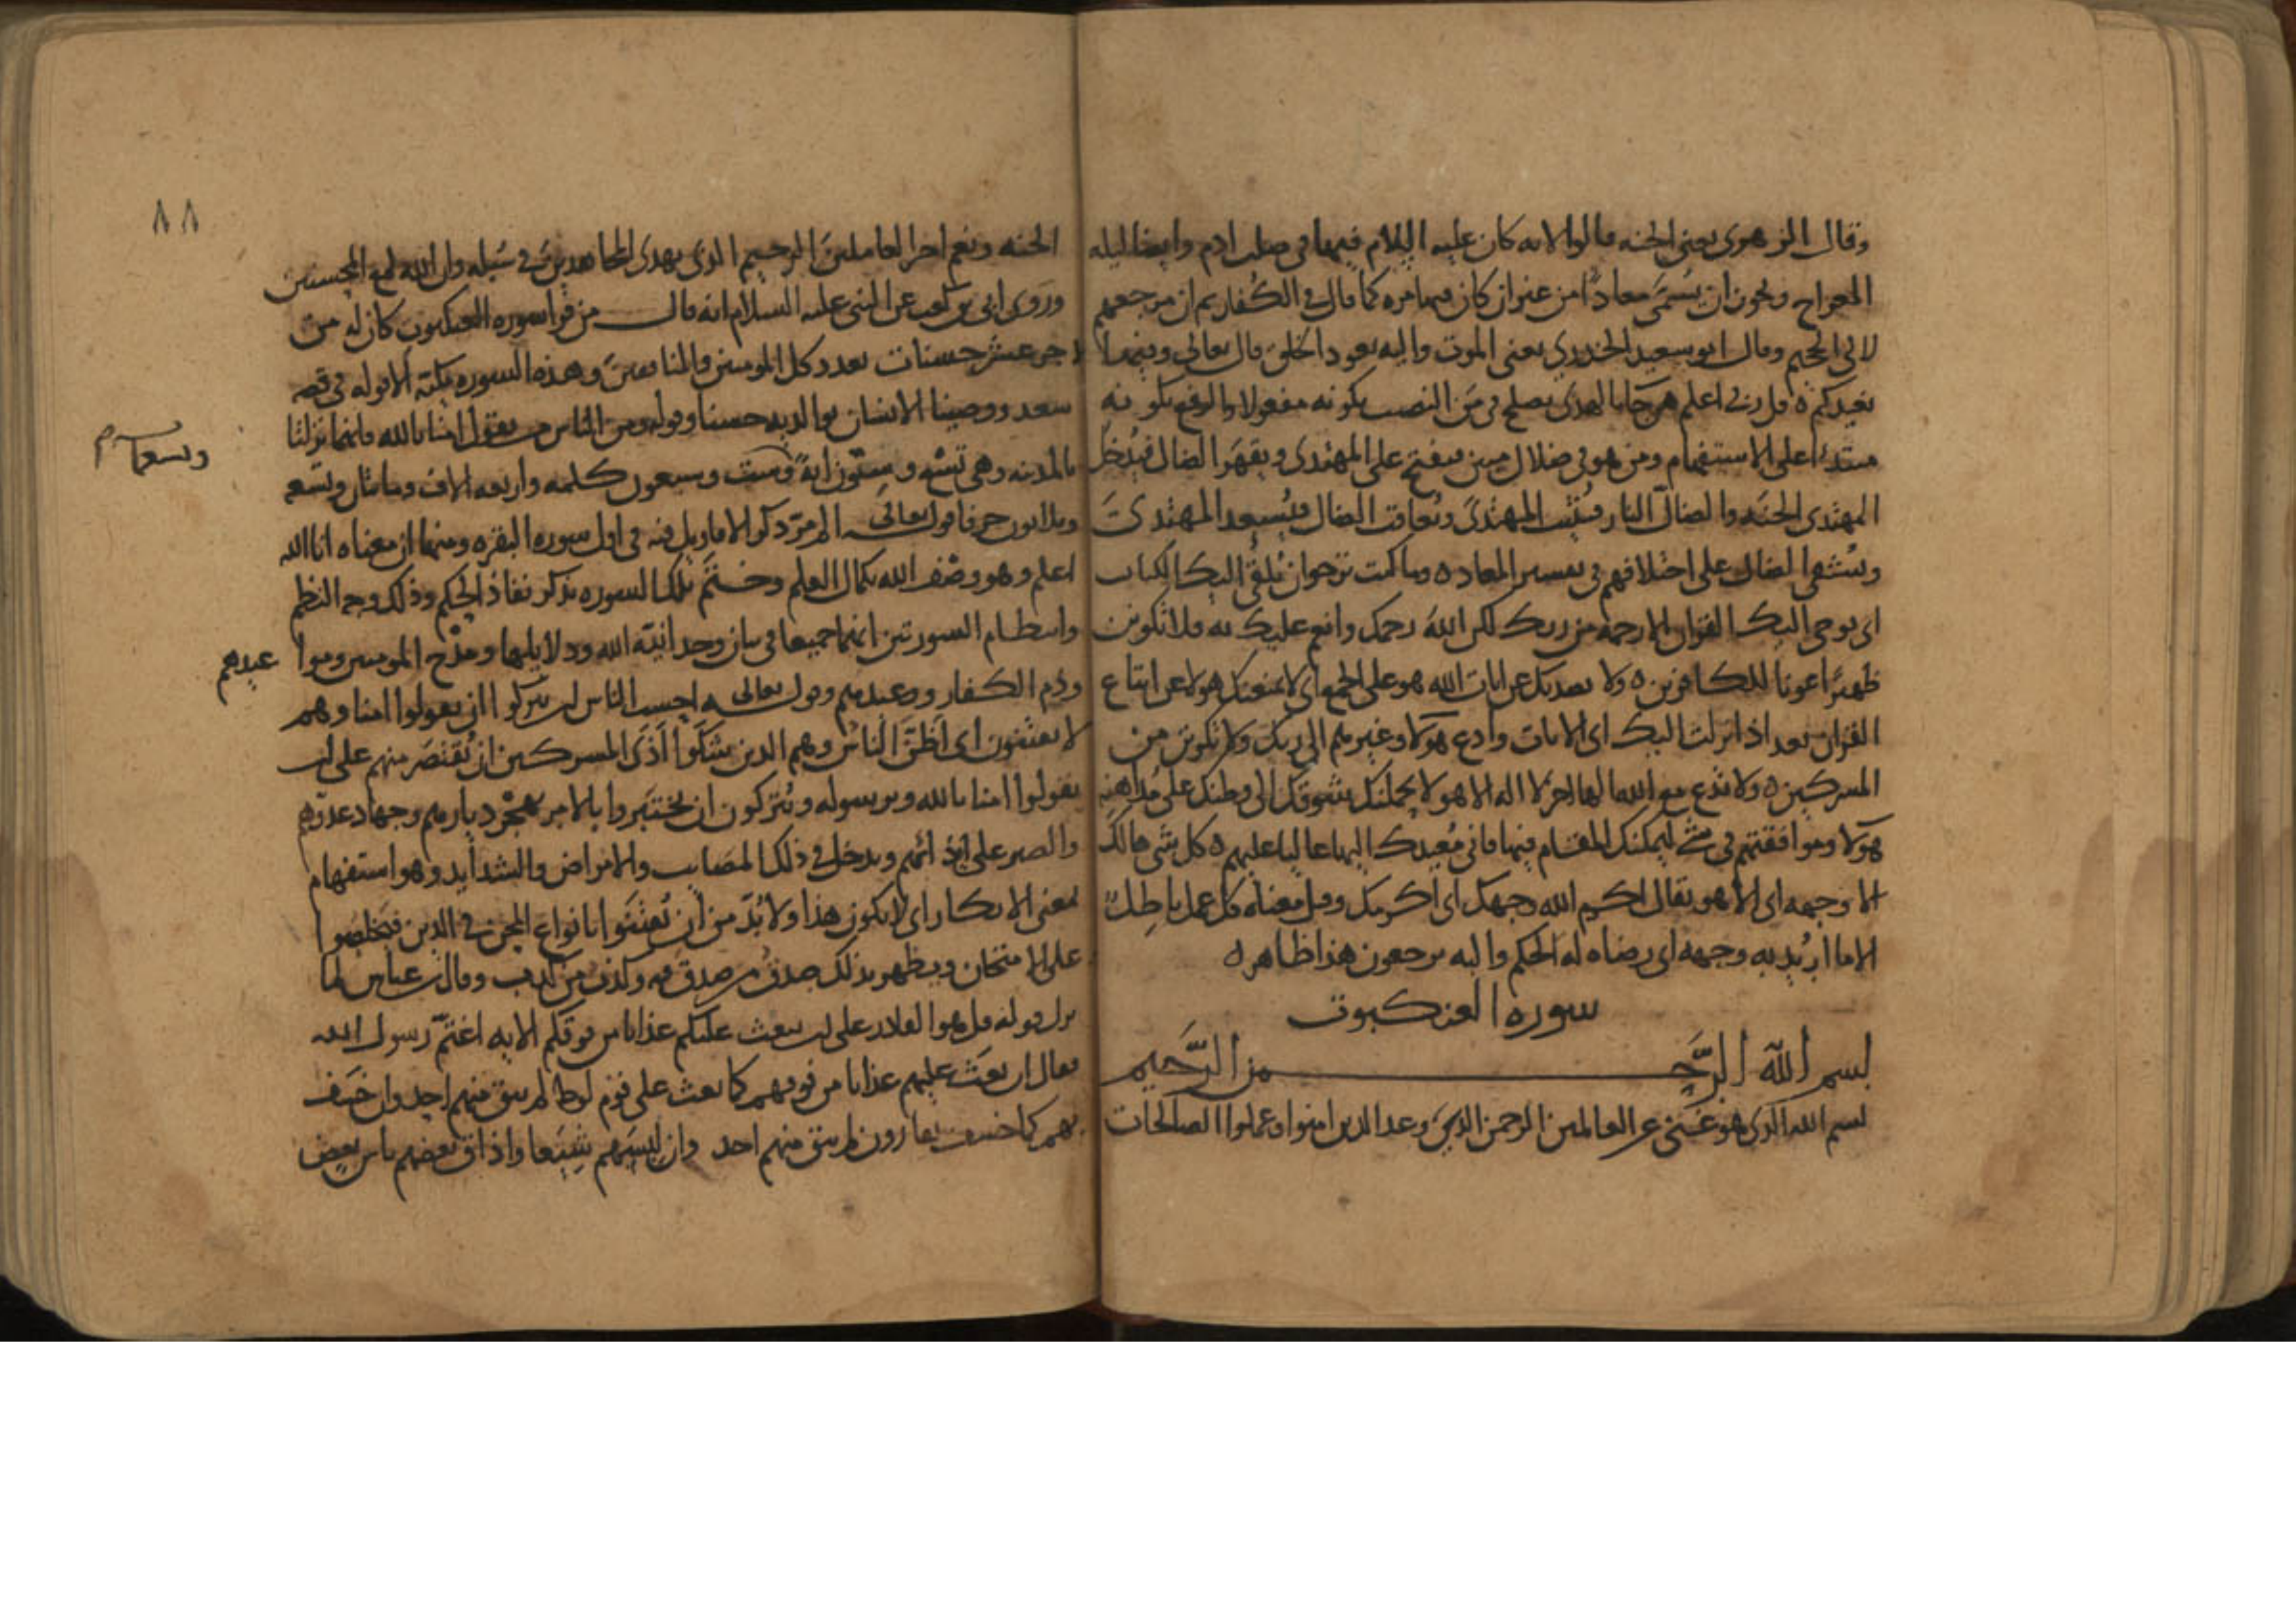 وقال الزهري يعني الجنه قالوا لانه كان عليه السلام فيها في صلب ادم وايضا ليله
المعراج ويجوز ان يسمى معادا من غير ان كان فيها مره كما قال في الكفار ثم ان مرجعهم
لالى الجحيم وقال ابو سعيد الخدري يعني الموت واليه يعود الخلق قال تعالى وفيها
نعيدكم ه قل ربي اعلم من جا بالهدى يصلح في من النصب بكونه مفعولا والرفع بكونه
مبتدئا على الاستفهام ومن هو في ضلال مبين فيفتح على المهتدى ويقهر الضال فيدخل
المهتدى الجنه والضال النار فيثيب المهتدى ويعاقب الضال فيسعد المهتدى
ويشقى الضال على اختلافهم في تفسير المعاد ه وما كنت ترجوا ان يلقى اليك الكتاب
اى يوحى اليك القران الا رحمة من ربك لكن الله رحمك وانعم عليك به فلا تكونن
ظهيرا عونا للكافرين ه ولا يصدنك عن ايات الله هو على الجمع اى لا يمنعنك هولا عن اتباع
القران بعد اذ انزلت اليك اى الايات وادع هولا وغيرهم الى ربك ولا تكونن من
المشركين ه ولا تدع مع الله الها اخر لا اله الا هو لا يحملنك شوقك الى وطنك على مداهنه
هولا وموافقتهم في شى ليمكنك المقام فيها فاني معيدك اليها عاليا عليهم ه كل شى هالك
الا وجهه اى الا هو يقال اكرم الله وجهك اى اكرمك وقيل معناه كل عمل باطل
الا ما اريد به وجهه اى رضاه له الحكم واليه ترجعون هذا ظاهر ه
سوره العنكبوت
بسم الله الرحمن الرحيم
بسم الله الذى هو غني عن العالمين الرحمن الذى وعد الذين امنوا وعملوا الصالحات
٨٨
الجنه ونعم اجر العاملين الرحيم الذى يهدى المجاهدين في سبيله وان الله لمع المحسنين
وروى ابي بن كعب عن النبي عليه السلام انه قال من قرا سوره العنكبوت كان له من
الاجر عشر حسنات بعدد كل المومنين والمنافقين وهذه السوره مكيه الا قوله في قصه
سعد ووصينا الانسان بوالديه حسنا وقوله ومن الناس من يقول امنا بالله فانهما نزلتا
بالمدينه وهي تسع وستون ايه وست وسبعون كلمه واربعه الاف ومايتان وتسع
وثلاثون حرفا قوله تعالى الم مر ذكر الاقاويل فيه في اول سوره البقره ومنها ان معناه انا الله
اعلم وهو وصف الله بكمال العلم وختم تلك السوره بذكر نفاذ الحكم وذلك وجه النظم
وانتظام السورتين انهما جميعا في بيان وحدانية الله ودلايلها ومدح المومنين
وذم الكفار ووعيدهم وقوله تعالى احسب الناس ان يتركوا ان يقولوا امنا وهم
لا يفتنون اى اظن الناس وهم الذين شكوا اذى المشركين ان يقتصر منهم على ان
يقولوا امنا بالله وبرسوله ويتركون ان يختبروا بالامر بهجر ديارهم وجهاد عدوهم
والصبر على ايذائهم ويدخل في ذلك المصايب والامراض والشدايد وهو استفهام
بمعنى الانكار اى لا يكون هذا ولا بد من ان يفتنوا بانواع المحن في الدين فيخلصوا
على الامتحان ويظهر بذلك صدق من صدق فيه وكذب من كذب وقال ابن عباس لما
نزل قوله قل هو القادر على ان يبعث عليكم عذابا من فوقكم الايه اغتم رسول الله
فقال ان بعث عليهم عذابا من فوقهم كما بعث على قوم لوط لم يبق منهم احد وان خسف
بهم كما خسف بقارون لم يبق منهم احد وان لبسهم شيعا واذاق بعضهم باس بعض